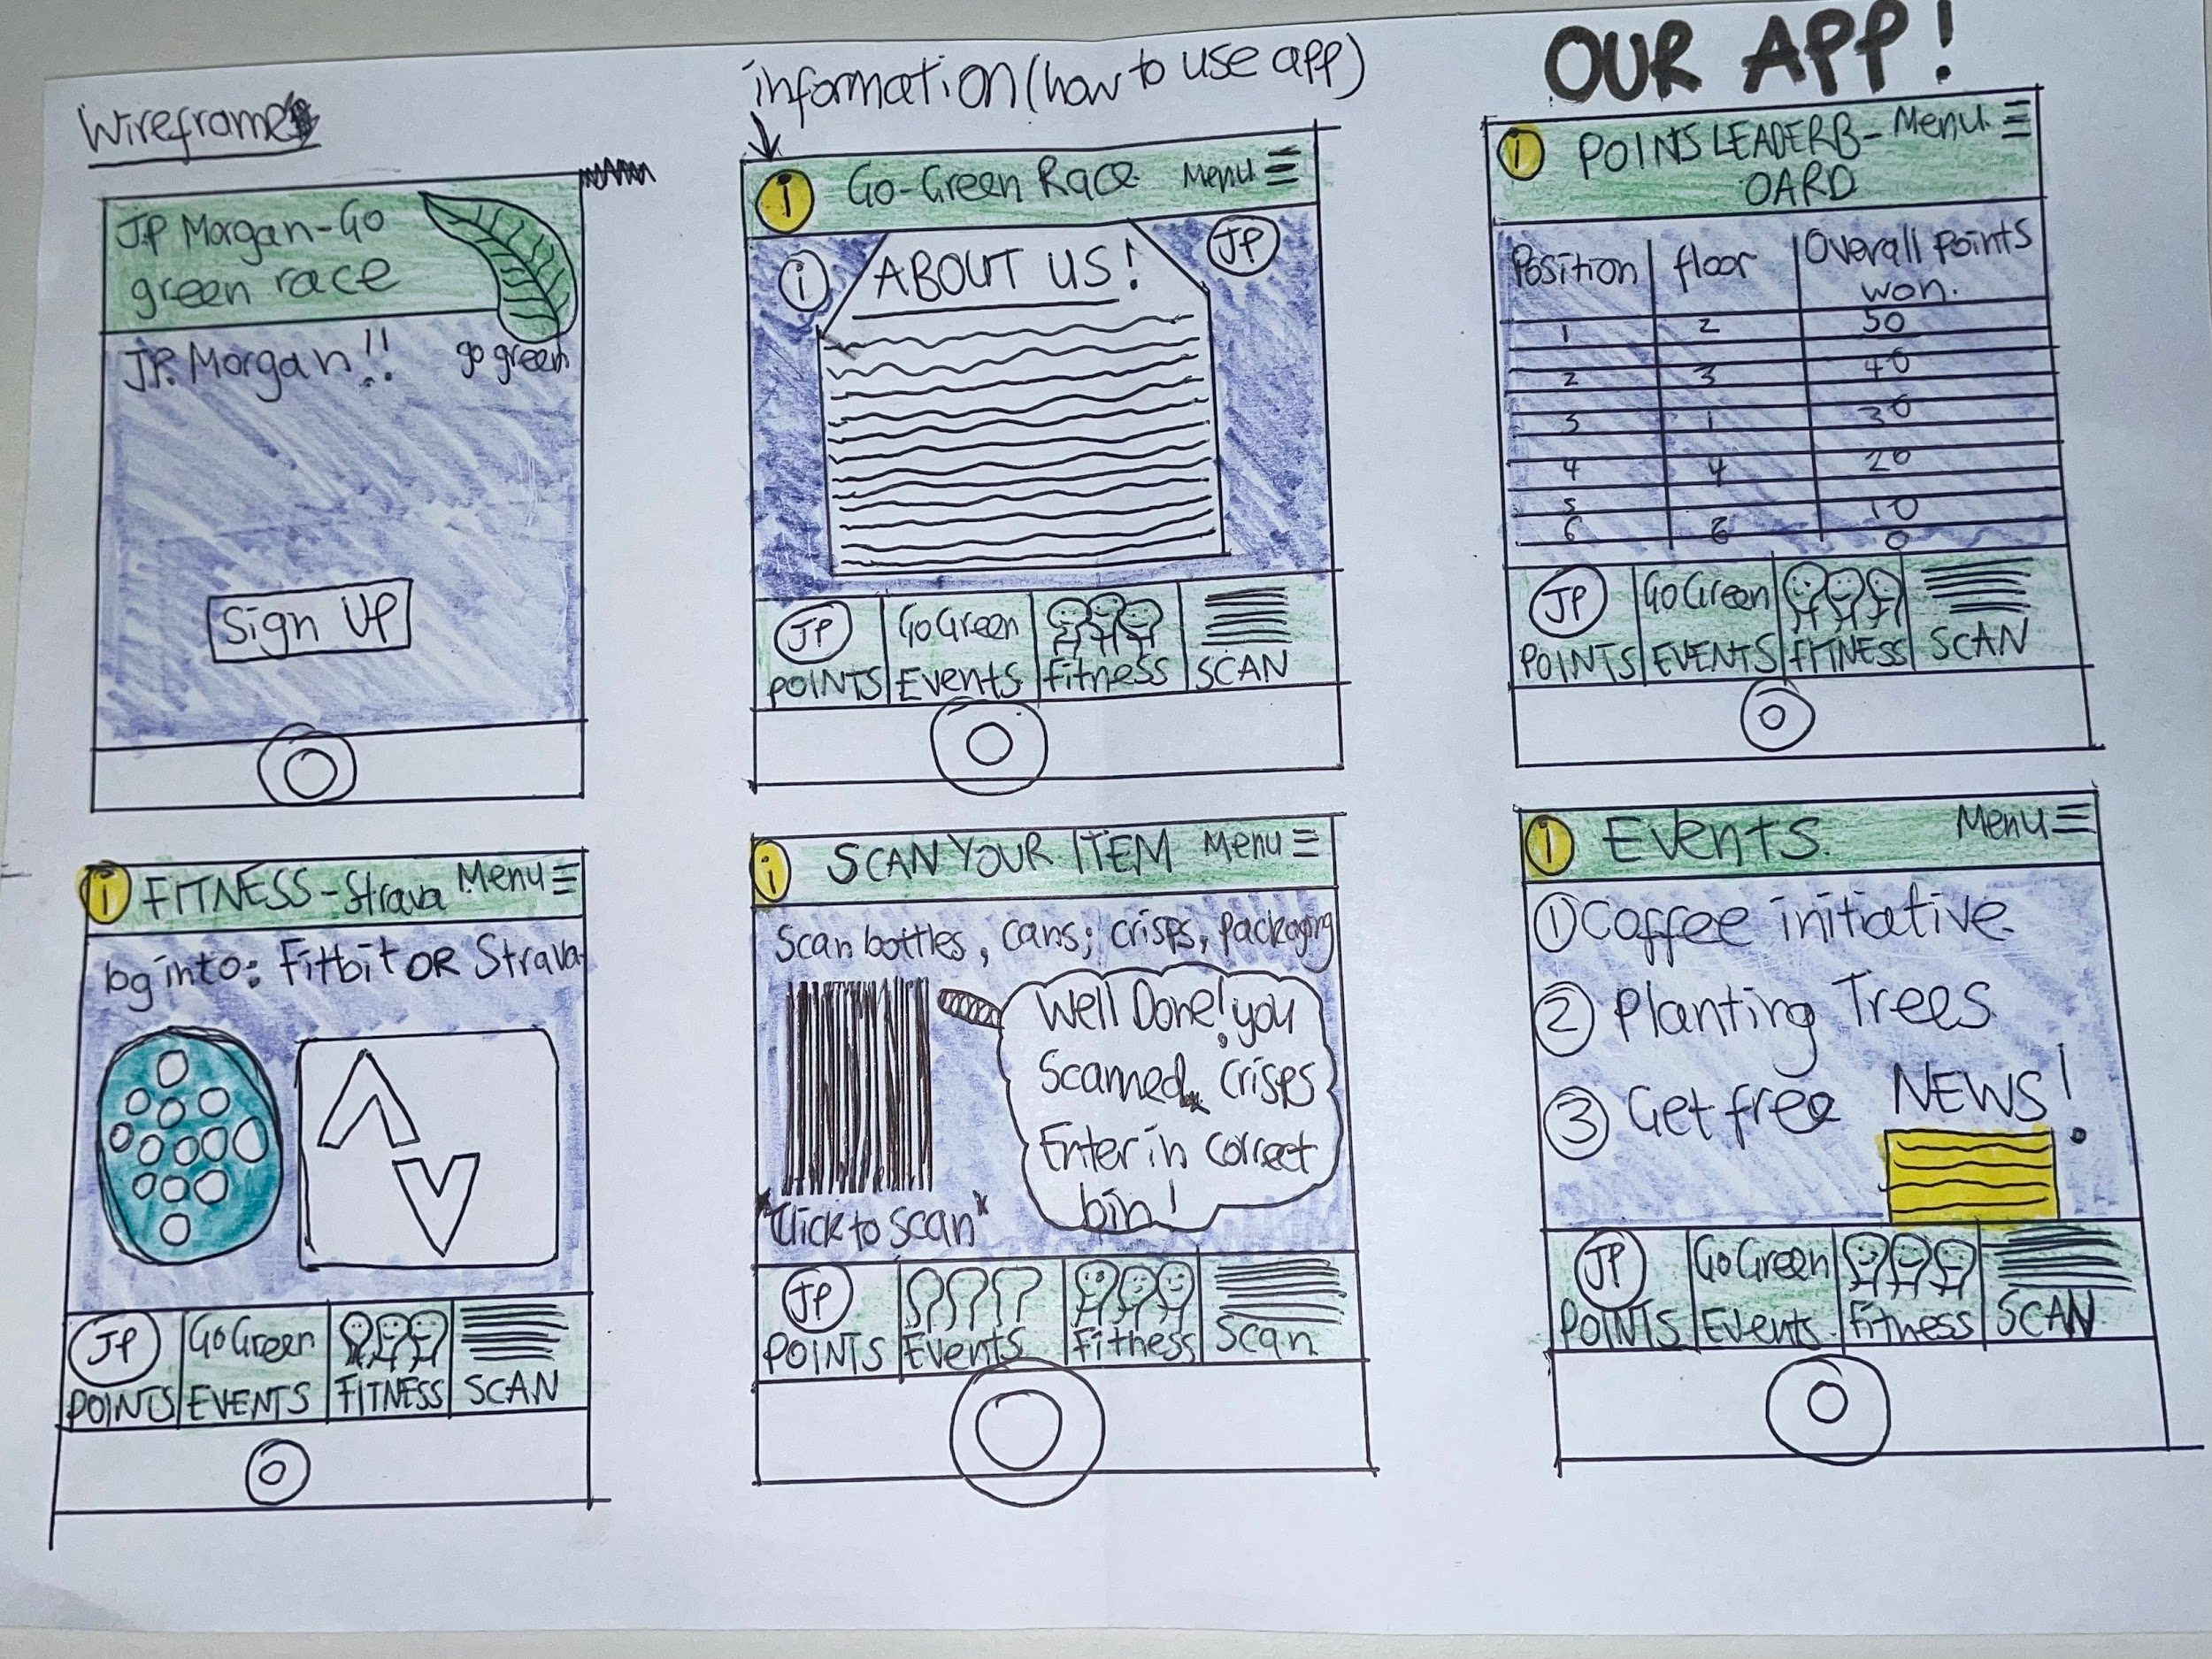 Wireframe
information (how to use app)
OUR APP!
JP Morgan-Go
green race
J.P. Morgan!!
go green
Sign UP
i
Go-Green Race
Menu
i
ABOUT US!
JP
JP
POINTS
GoGreen
Events
fitness
SCAN
i
POINS LEADERB-
OARD
Menu
Position
floor
Overall points
won.
1 2 50
2 3 40
3 1 30
4 4 20
5 10
6 6 0
JP
POINTS
GoGreen
EVENTS
FITNESS
SCAN
i
FITNESS-Strava
Menu
log into: Fitbit OR Strava
JP
POINTS
GoGreen
EVENTS
FITNESS
SCAN
i
SCAN YOUR ITEM
Menu
Scan bottles, cans; crisps, packaging
Well Done! you
Scanned crisps
Enter in correct
bin!
"Click to scan"
JP
POINTS
Events
Fitness
Scan
i
Events.
Menu
① Coffee initiative
② Planting Trees
③ Get free
NEWS!
JP
POINTS
GoGreen
Events
Fitness
SCAN